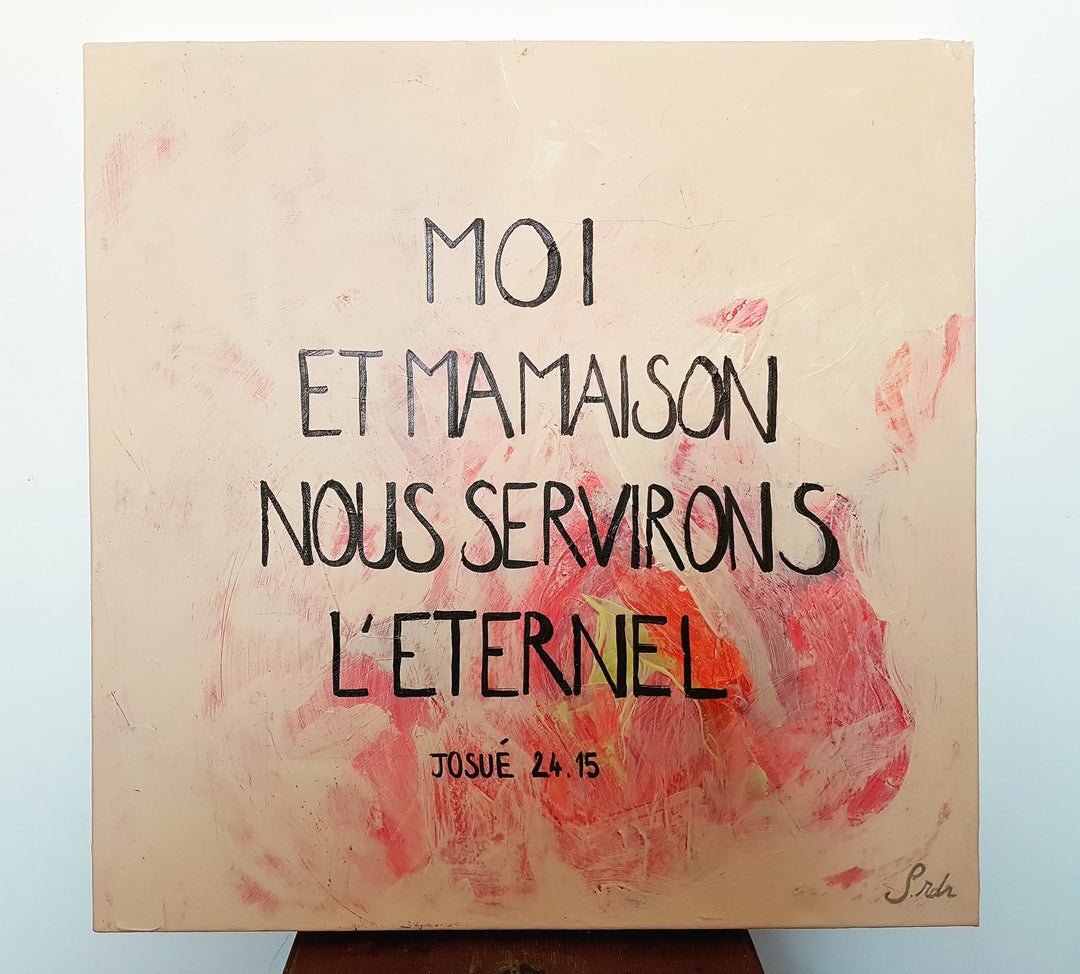 MOI
ET MA MAISON
NOUS SERVIRONS
L'ETERNEL
JOSUÉ 24.15
S.rdr